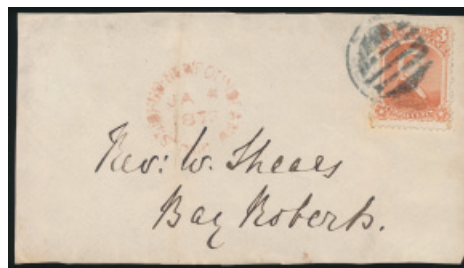 3
NEWFOUNDLAND
JA 4
187
Rev: W. Sheaes
Bay Roberts.